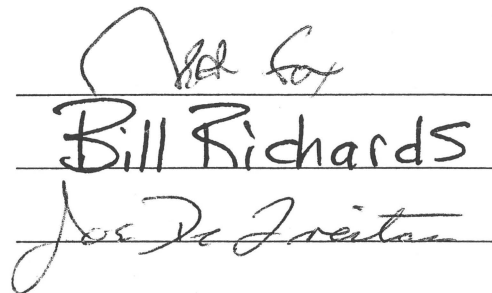 Fox
Bill Richards
Joe De Freitas